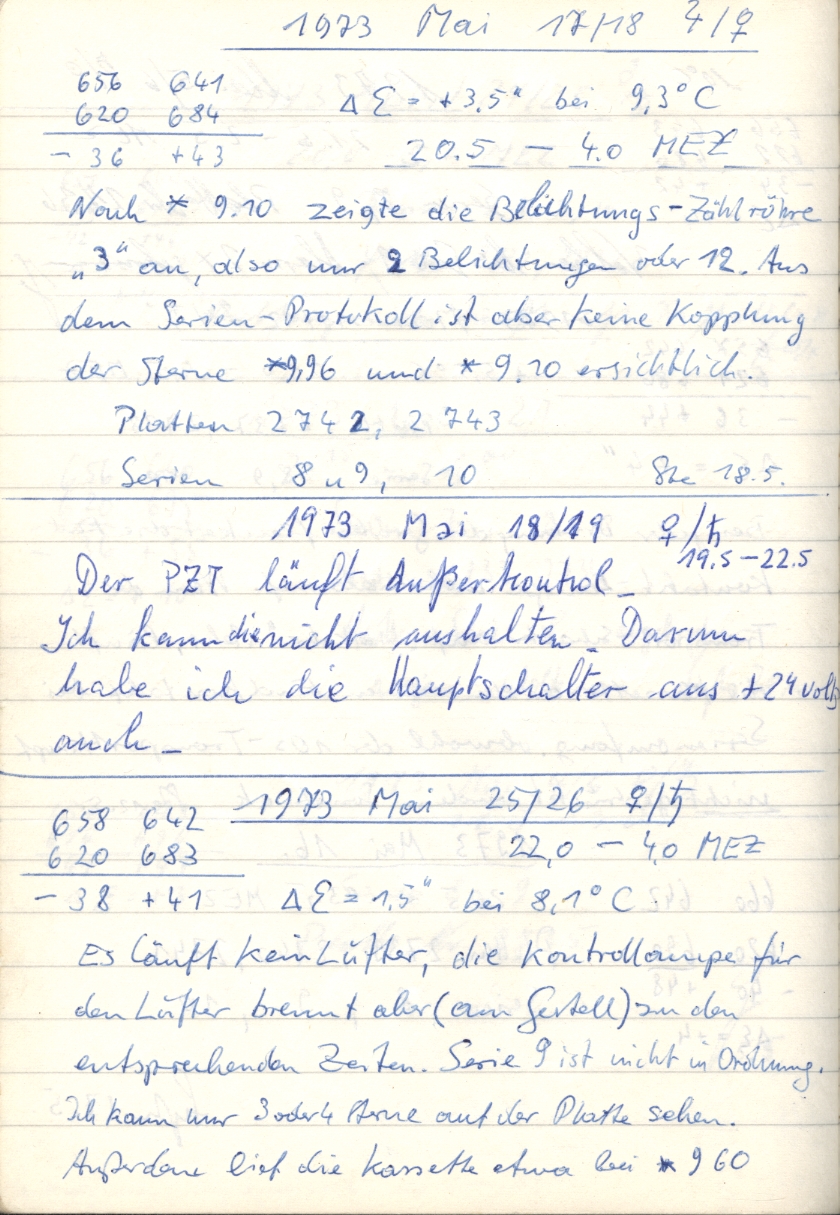 1973 Mai 17/18 ♃/♀
656 641
620 684
Δ Ɛ = +3.5" bei 9,3°C
- 36 +43
20.5 - 4.0 MEZ
Nach * 9.10 zeigte die Belichtungs-Zählröhre
„3" an, also nur 2 Belichtungen oder 12. Aus
dem Serien-Protokoll ist aber keine Kopplung
der Sterne *9,96 und * 9.10 ersichtlich.
Platten 2742, 2743
Serien 8 u 9, 10 Ste 18.5.
1973 Mai 18/19 ♀/♄
19.5-22.5
Der PZT läuft Außerkontrol_
Ich kann die nicht aushalten_ Darum
habe ich die Hauptschalter aus +24 volts
auch_
1973 Mai 25/26 ♀/♄
658 642
620 683
22,0 - 4,0 MEZ
- 38 +41 Δ Ɛ = 1,5" bei 8,1°C.
Es läuft kein Lüfter, die Kontrollampe für
den Lüfter brennt aber (am Gestell) zu den
entsprechenden Zeiten. Serie 9 ist nicht in Ordnung.
Ich kann nur 3 oder 4 Sterne auf der Platte sehen.
Außerdem lief die Kassette etwa bei * 960